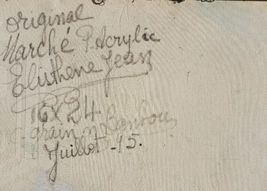 original
Marché P. Acrylic
Eluthene Jean
16X24
grain
Juillet -15.